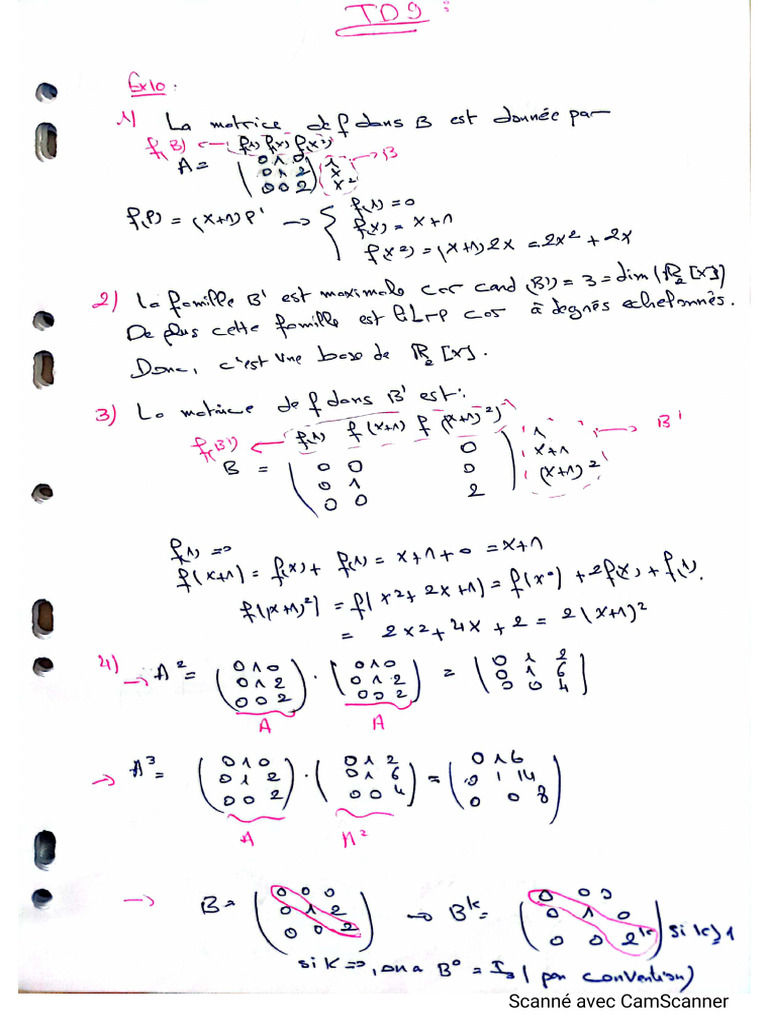 TD9 :
Ex10 :
1) La matrice de f dans B est donnée par
f(B) ← f(1) f(x) f(x²)
A = ( 0 1 0 ) 1 → B
( 0 1 2 ) x
( 0 0 2 ) x²
f(P) = (x+1)P' → { f(1) = 0
f(x) = x+1
f(x²) = (x+1)2x = 2x² + 2x
2) la famille B' est maximale car card(B') = 3 = dim(ℝ₂[x])
De plus cette famille est libre car à degrés echelonnés.
Donc, c'est une base de ℝ₂[x].
3) La matrice de f dans B' est :
f(B') ← f(1) f(x+1) f((x+1)²) → B'
B = ( 0 0 0 ) 1
( 0 1 0 ) x+1
( 0 0 2 ) (x+1)²
f(1) = 0
f(x+1) = f(x) + f(1) = x+1+0 = x+1
f((x+1)²) = f(x²+2x+1) = f(x²) + 2f(x) + f(1).
= 2x² + 4x + 2 = 2(x+1)²
4) → A² = ( 0 1 0 ) . ( 0 1 0 ) = ( 0 1 2 )
( 0 1 2 ) ( 0 1 2 ) ( 0 1 6 )
( 0 0 2 ) ( 0 0 2 ) ( 0 0 4 )
A A
→ A³ = ( 0 1 0 ) . ( 0 1 2 ) = ( 0 1 6 )
( 0 1 2 ) ( 0 1 6 ) ( 0 1 14 )
( 0 0 2 ) ( 0 0 4 ) ( 0 0 8 )
A A²
→ B = ( 0 0 0 ) → Bᵏ = ( 0 0 0 )
( 0 1 2 ) ( 0 1 0 )
( 0 0 2 ) ( 0 0 2ᵏ ) si k≥1
si k=0, on a B⁰ = I₃ (par convention)
Scanné avec CamScanner